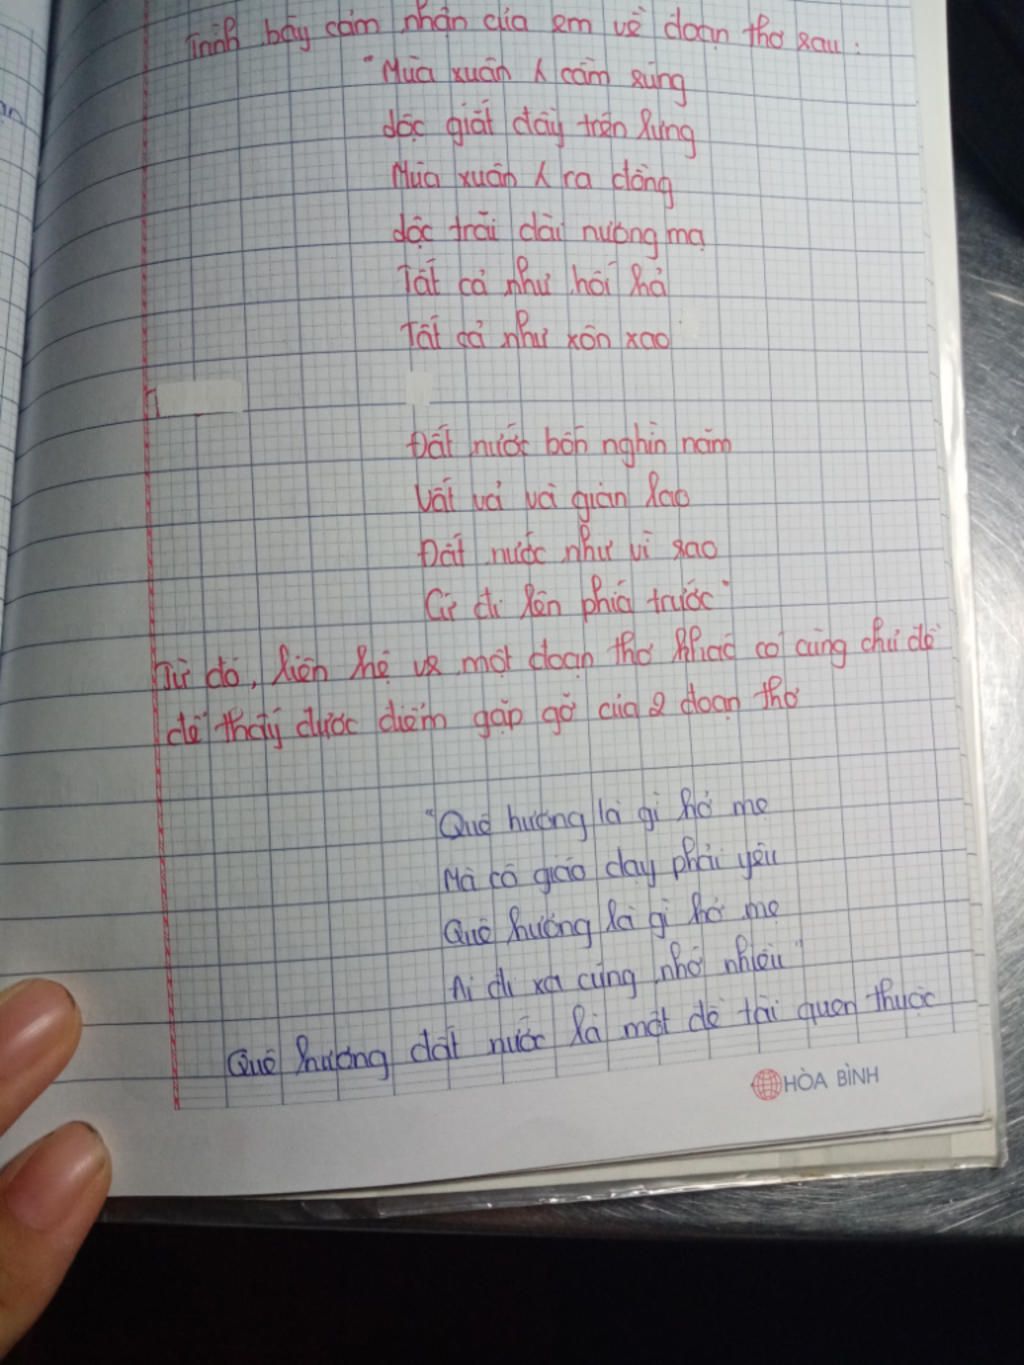 Trình bày cảm nhận của em về đoạn thơ sau:
"Mùa xuân λ cầm súng
Lộc giắt đầy trên lưng
Mùa xuân λ ra đồng
Lộc trải dài nương mạ
Tất cả như hối hả
Tất cả như xôn xao
Đất nước bốn nghìn năm
Vất vả và gian lao
Đất nước như vì sao
Cứ đi lên phía trước"
Từ đó, liên hệ vs một đoạn thơ khác có cùng chủ đề
để thấy được điểm gặp gỡ của 2 đoạn thơ
"Quê hương là gì hở mẹ
Mà cô giáo dạy phải yêu
Quê hương là gì hở mẹ
Ai đi xa cũng nhớ nhiều"
Quê hương đất nước là một đề tài quen thuộc
HÒA BÌNH